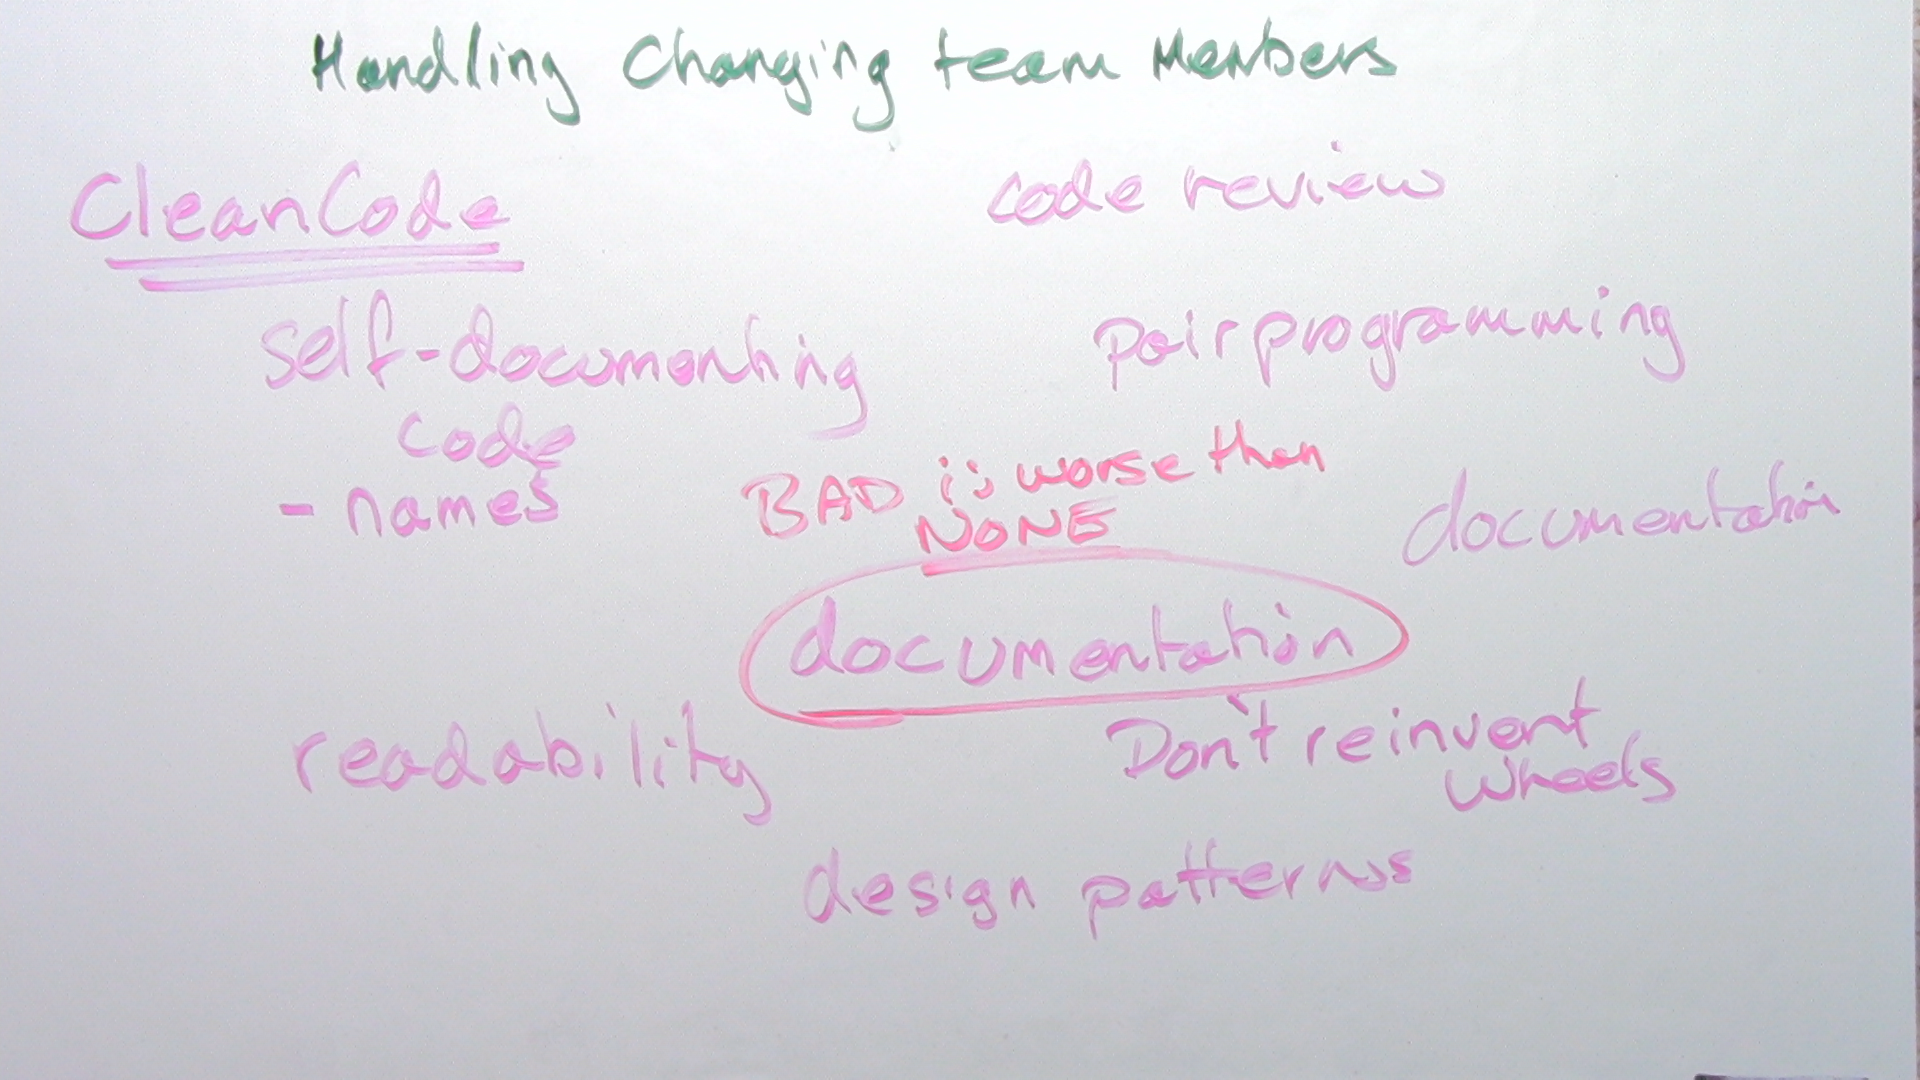 Handling Changing team Members
CleanCode
code review
self-documenting
code
- names
pair programming
BAD is worse than
NONE
documentation
documentation
readability
Don't reinvent
wheels
design patterns